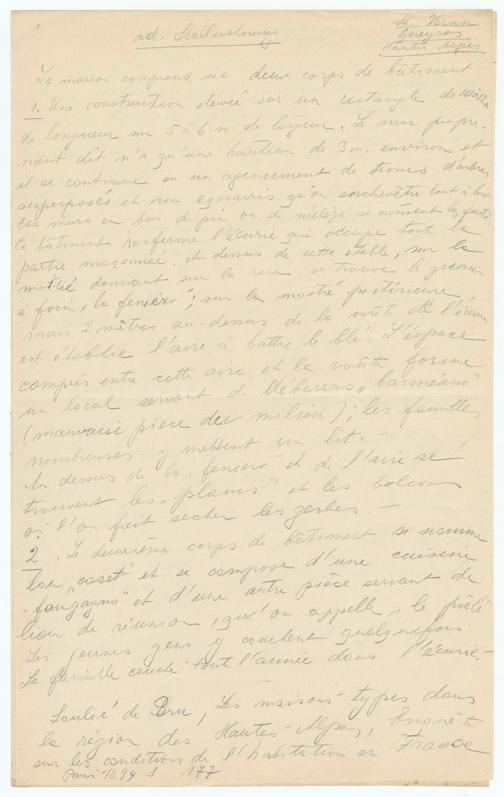 1.
ad. Stallwohnung
St. Véran
Queyras
Hautes Alpes
La maison comprend ici deux corps de bâtiment
1. Une construction élevée sur un rectangle de 10 à 12 m
de longueur sur 5 à 6 m. de largeur. Le mur propre-
ment dit n'a qu'une hauteur de 3 m. environ et
il se continue en un agencement de troncs d'arbres
superposés et non equarris qu'on enchevêtre bout à bout
ces murs en bois de pin ou de mélèze se nomment les
Ce bâtiment renferme l'écurie qui occupe toute la
partie maçonnée. Au dessus de cette étable, sur la
moitié donnant sur la rue, se trouve le grenier
à foin, la "fenièro"; sur la moitié postérieure,
mais 2 mètres au-dessus de la voûte de l'écurie
est établie l'aire à battre le blé. L'espace
compris entre cette aire et la voûte forme
un local servant de débarras „barinéano"
(mauvaise pièce du milieu); les familles
nombreuses y mettent un lit. -
Au dessus de la „fenièro" et de l'aire se
trouvent les „planes" et les balcons
où l'on fait sécher les gerbes. -
2. Le deuxième corps de bâtiment se nomme
lou „caset" et se compose d'une cuisine
„fougagno" et d'une autre pièce servant de
lieu de réunion, qu'on appelle „le poêlé
Les jeunes gens y couchent quelquefois
La famille couche toute l'année dans l'écurie. -
de Bru, Les maisons-types dans
la région des Hautes-Alpes, Enquête
sur les conditions de l'habitation en France
Paris 1894 S 177